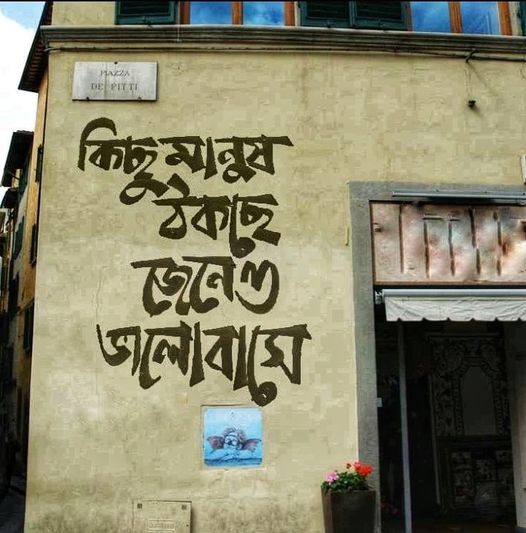 PIAZZA
DE PITTI
কিছু মানুষ
ঠকছে
জেনেও
ভালোবাসে